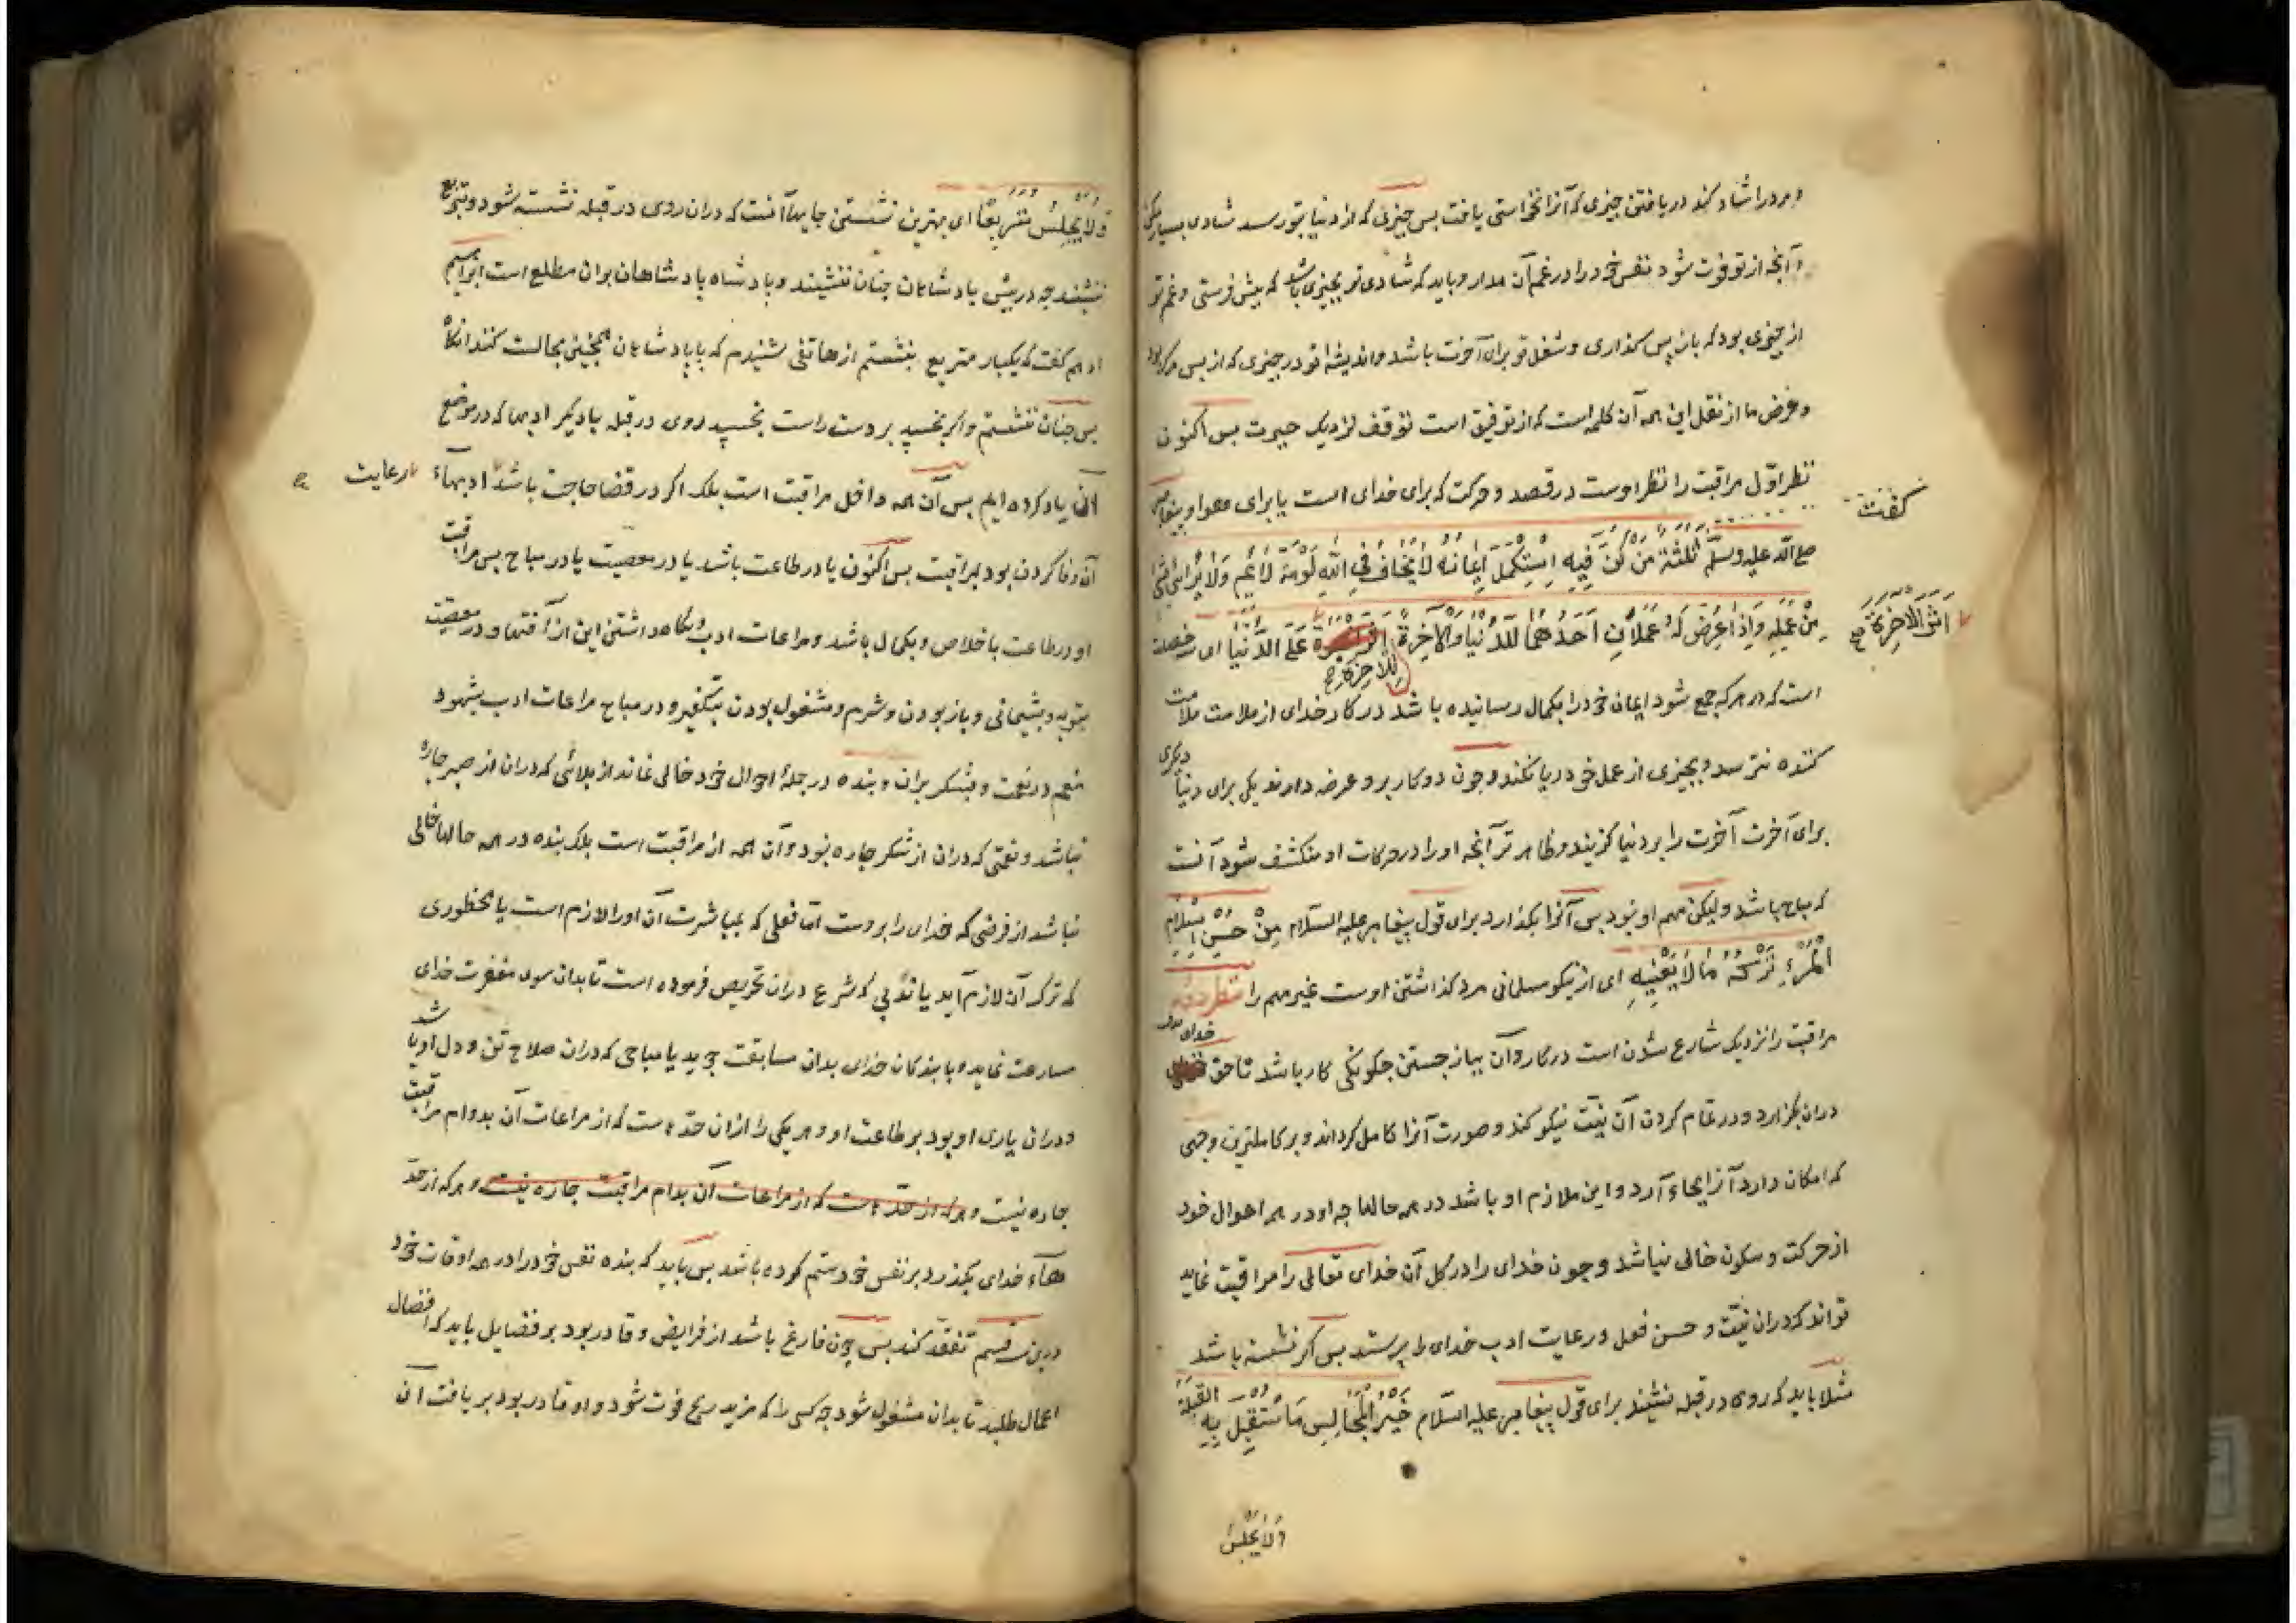 و مرد را شاد کند دریافتن چیزی که آنرا نخواستی یافت بس چیزی که از دنیا بتو رسد شادی بسیار مکن
و آنچه از تو فوت شود نفس خود را در غم آن مدار و باید که شادی تو بچیزی باشد که پیش فرستی و غم تو
از چیزی بود که باز پس گذاری و شغل تو برای آخرت باشد و اندیشهٔ تو در چیزی که از پس مرک بود
و غرض ما از نقل این همه آن کلمه است که از توفیق است توقف نزدیک حیرت بس اکنون
نظر اوّل مراقبت را نظر اوست در قصد و حرکت که برای خدای است یا برای هوا و پیغامبر
کفت
صلی الله علیه وسلّم ثَلٰثَةٌ مَنْ كُنَّ فِيهِ اِسْتَكْمَلَ اِيمَانَهُ لَا يَخَافُ فِي اللّٰهِ لَوْمَةَ لَائِمٍ وَلَا يُرَائِي بِشَيْءٍ
مِنْ عَمَلِهِ وَاِذَا عُرِضَ لَهُ عَمَلَانِ اَحَدُهُمَا لِلدُّنْيَا وَالْآخِرَةُ عَلَى الدُّنْيَا ای سه خصلت
للآخرة صح
اثر الآخرة صح
است که در هرکه جمع شود ایمان خود را بکمال رسانیده باشد در کار خدای از ملامت ملامت
کننده نترسد و بچیزی از عمل خود ریا نکند و چون دو کار برو عرضه دارند یکی برای دنیا دیگری
برای آخرت آخرت را بر دنیا گزیند و ظاهرتر آنچه او را در حرکات او منکشف شود آنست
که مباح باشد ولیکن مهم او نبود بس آنرا بکذارد برای قول پیغامبر علیه السّلام مِنْ حُسْنِ اِسْلَامِ
الْمَرْءِ تَرْكُهُ مَا لَا يَعْنِيهِ ای از نیکو مسلمانی مرد کذاشتن اوست غیر مهم را نظر دوم
مراقبت را نزدیک شارع شدن است در کار و آن بباز جستن چگونگی کار باشد تا حق خدای
دران بگزارد و در تمام کردن آن نیّت نیکو کند و صورت آنرا کامل گرداند و بر کاملترین وجهی
که امکان دارد آنرا بجاء آرد و این ملازم او باشد در همه حالها چه او در همه احوال خود
از حرکت و سکون خالی نباشد و چون خدای را در کل آن خدای تعالی را مراقبت نماید
تواند که دران نیّت و حسن فعل و رعایت ادب خدای را پرستد بس اگر نشسته باشد
مثلا باید که روی در قبله نشیند برای قول پیغامبر علیه السّلام خَيْرُ الْمَجَالِسِ مَا اسْتُقْبِلَ بِهِ القبلة
ولا یجلس
وَلَا يَجْلِسُ مُتَرَبِّعًا ای بهترین نشستن جایها آنست که دران روی در قبله نشسته شود و متربّع
ننشیند چه در پیش پادشاهان چنان ننشینند و پادشاه پادشاهان بران مطلع است ابراهیم
ادهم کفت که یکبار متربع بنشستم از هاتفی شنیدم که با پادشاهان همچنین مجالست کنند آنکاه
بس چنان ننشستم و اگر بخسپد بر دست راست بخسپد روی در قبله با دیگر ادبها که در موضع
آن یاد کرده ایم بس آن همه داخل مراقبت است بلکه اگر در قضا حاجت باشد ادبهاء
رعایت
آن وفا کردن بود بمراقبت بس اکنون یا در طاعت باشد یا در معصیت یا در مباح بس مراقبت
او در طاعت باخلاص و بکمال باشد و مراعات ادب و نگاه داشتن این از آفتها و در معصیت
بتوبه و پشیمانی و باز بودن و شرم و مشغول بودن بتکفیر و در مباح مراعات ادب بشهود
منعم در نعمت و بشکر بران و بنده در جملهٔ احوال خود خالی نماند از بلائی که دران از صبر چاره
نباشد و نعمتی که دران از شکر چاره نبود و آن همه از مراقبت است بلکه بنده در همه حالها خالی
نباشد از فرضی که خدای را بروست امّا فعلی که بمباشرت آن او را لازم است یا محظوری
که ترک آن لازم آید یا ندبی که شرع دران تحریص فرموده است تا بدان سوی مغفرت خدای
مسارعت نماید و با بندگان خدای بدان مسابقت جوید یا مباحی که دران صلاح تن و دل او باشد
و دران یاری او بود بر طاعت او و هر یکی را ازان حدّهاست که از مراعات آن بدوام مراقبت
چاره نیست و هرکه از حدّهاست که از مراعات آن بدام مراقبت چاره نیست و هرکه از حدّ
هاء خدای بکذرد بر نفس خود ستم کرده باشد بس باید که بنده نفس خود را در همه اوقات خود
درین سه قسم تفقّد کند بس چون فارغ باشد از فرایض و قادر بود بر فضایل باید که افضال
اعمال طلبد تا بدان مشغول شود چه کسی را که مزید ربح فوت شود و او قادر بود بر یافت آن